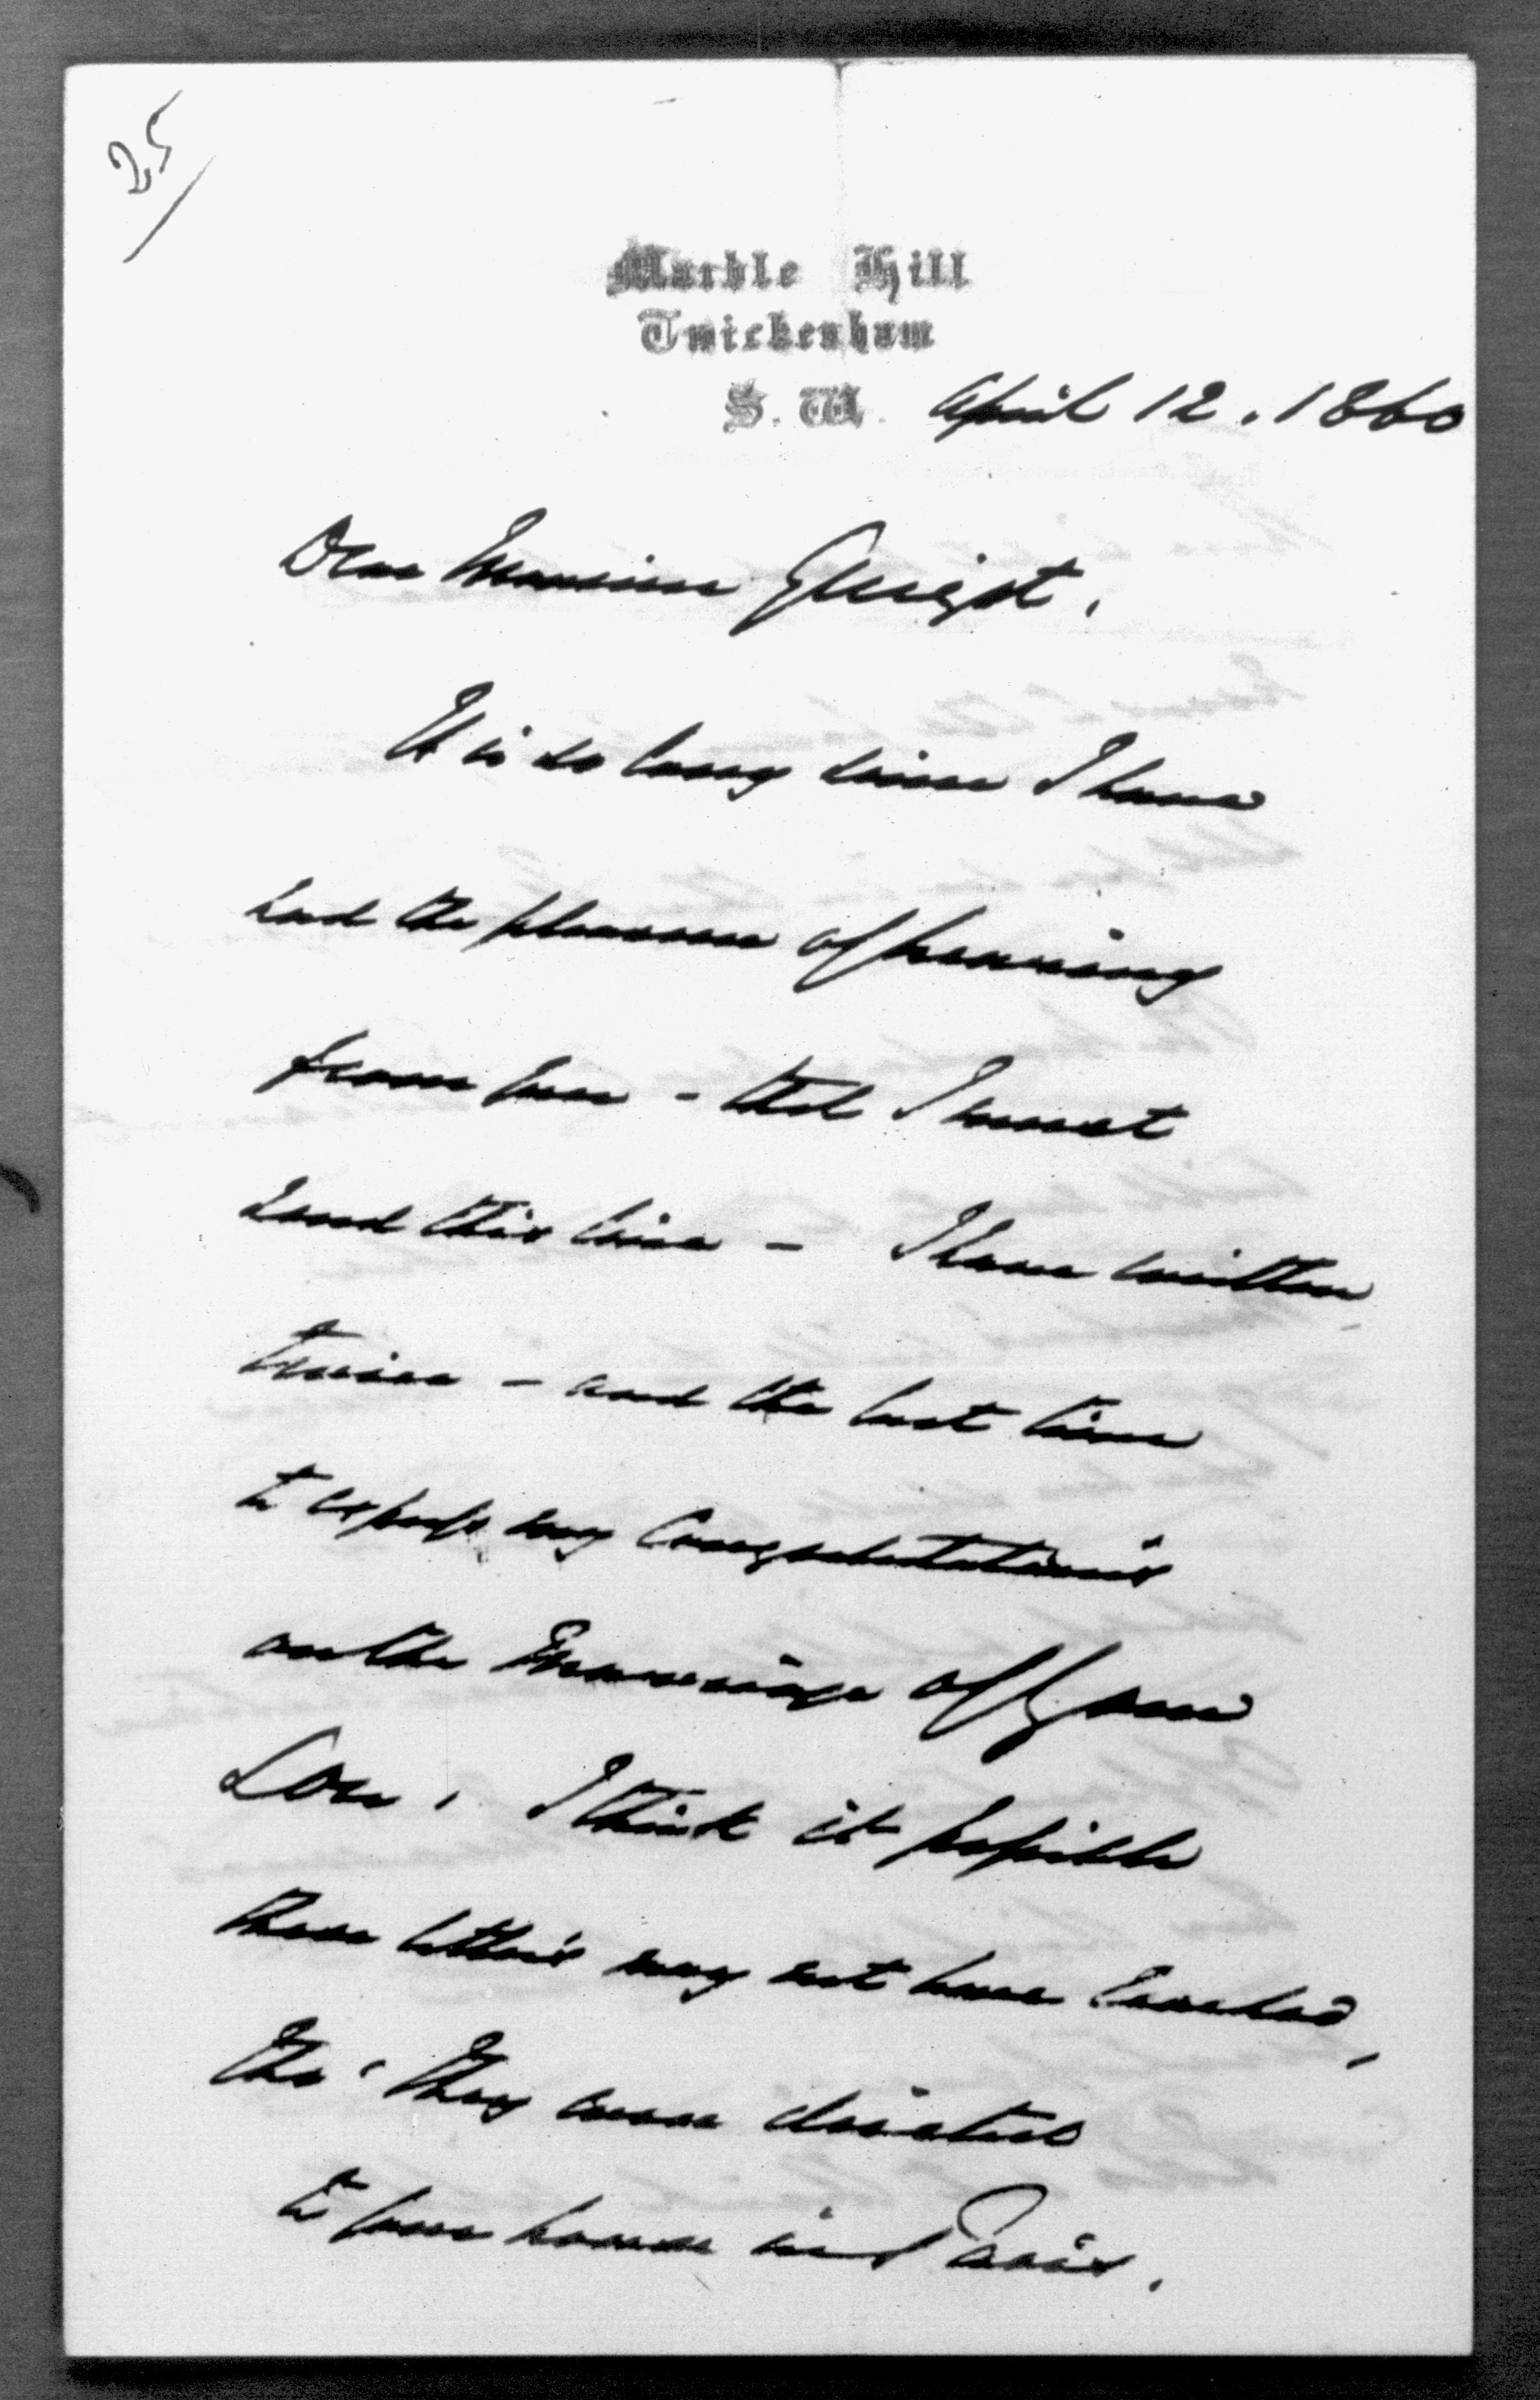 25
Marble Hill
Twickenham
S. W. April 12. 1860
Dear Monsieur Guizot,
It is so long since I have
had the pleasure of hearing
from you - that I must
send this line - I have written
twice - and the last time
to express my Congratulations
on the Marriage of your
Son. I think it possible
these letters may not have reached,
tho' they were directed
to your house in Paris.